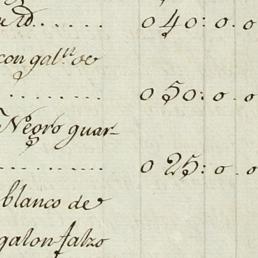 ud......... 040:0.0
con gal.ⁿ de
......... 050:0.0
Negro guar-
......... 025:0.0
blanco de
galon falzo